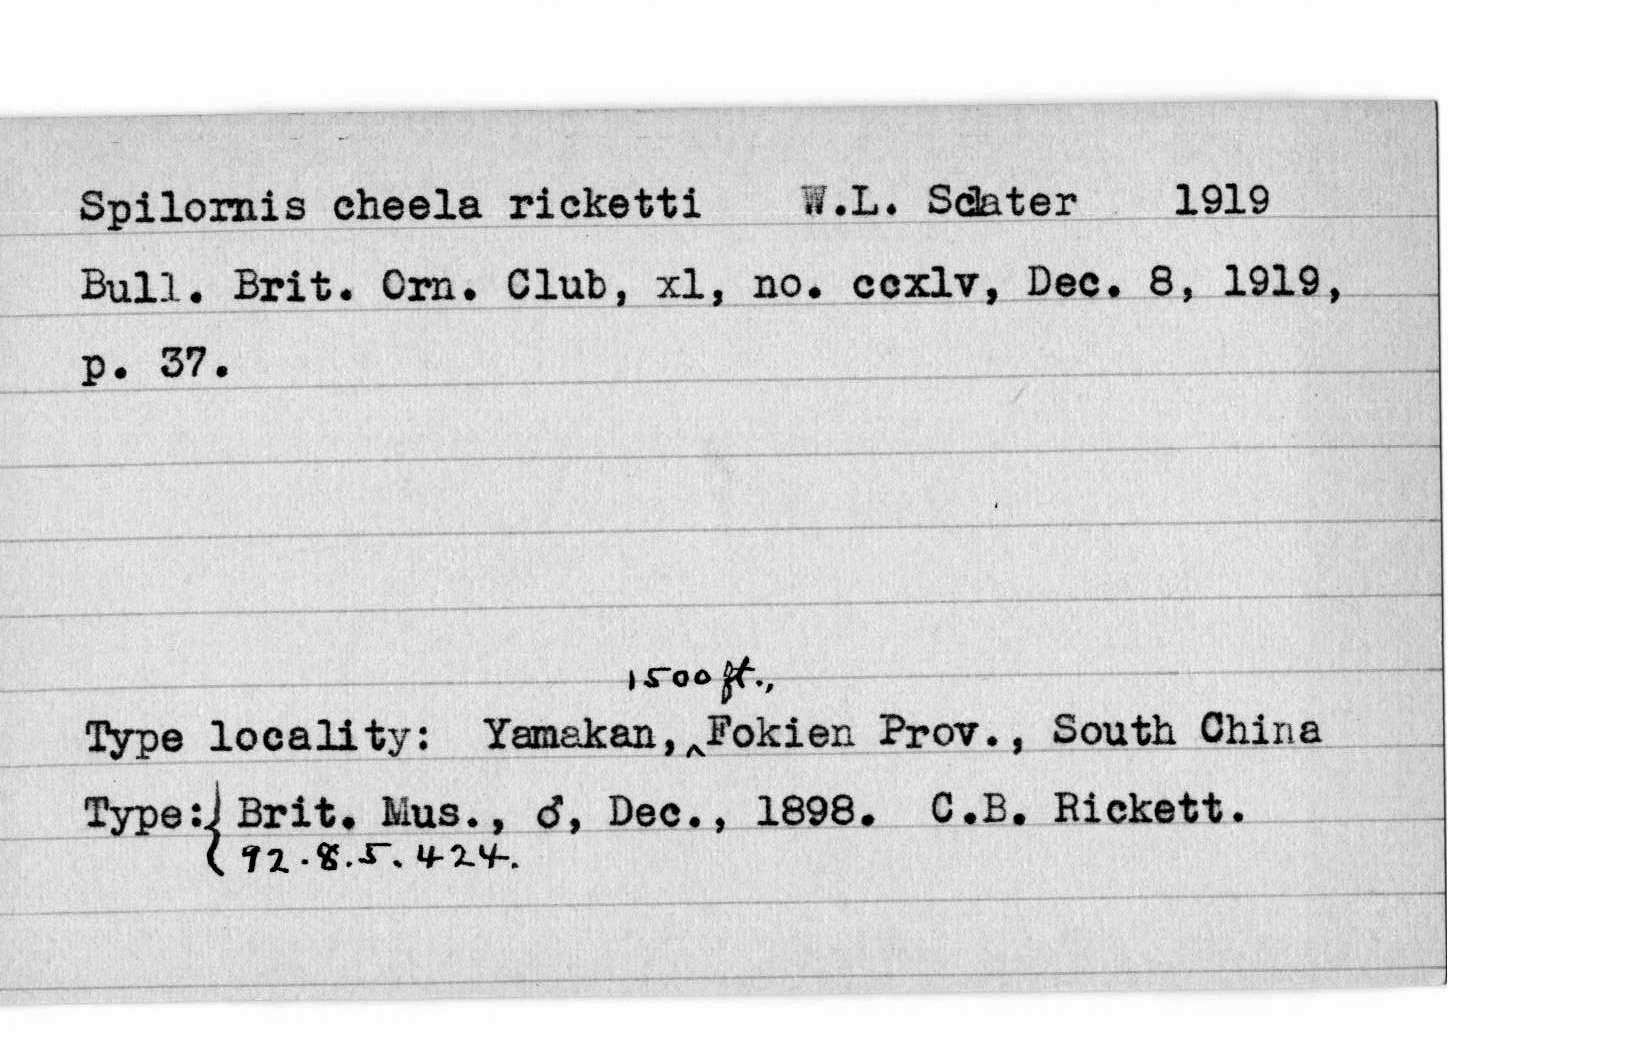 Spilornis cheela ricketti W.L. Sclater 1919
Bull. Brit. Orn. Club, xl, no. ccxlv, Dec. 8, 1919,
p. 37.
1500 ft.,
Type locality: Yamakan,‸Fokien Prov., South China
Type:{ Brit. Mus., ♂, Dec., 1898. C.B. Rickett.
92.8.5.424.